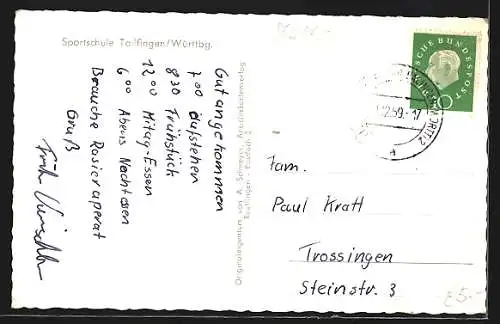 Sportschule Tailfingen/Württbg.
Gut angekommen
7.00 Aufstehen
8.30 Frühstück
12.00 Mitag-Essen
6.00 Abens Nachtessen
Brauche Rasieraperat
Gruß
Originaleigentum von A. Schweyer, Ansichtskartenverlag
DEUTSCHE BUNDESPOST
10
.12.59.-17
Fam.
Paul Kratt
Trossingen
Steinstr. 3
£5.-